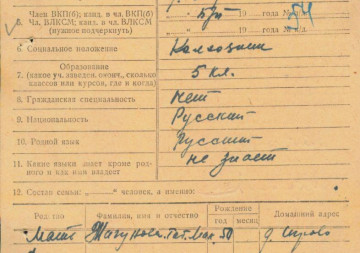 5. Член ВКП(б); канд. в чл. ВКП(б) б/п 19 года № п/б.
чл. ВЛКСМ; канд. в чл. ВЛКСМ 19 года № 54
(нужное подчеркнуть)
6. Социальное положение Колхозник
7. Образование 5 кл.
(какое уч. заведен. оконч., сколько
классов или курсов, где и когда)
8. Гражданская специальность нет
9. Национальность Русский
10. Родной язык Русский
11. Какие языки знает кроме род- не знает
ного и как ими владеет
12. Состав семьи: человек, а именно:
Род-тво Фамилия, имя и отчество Рождение Домашний адрес
год месяц
Мать 50 д.